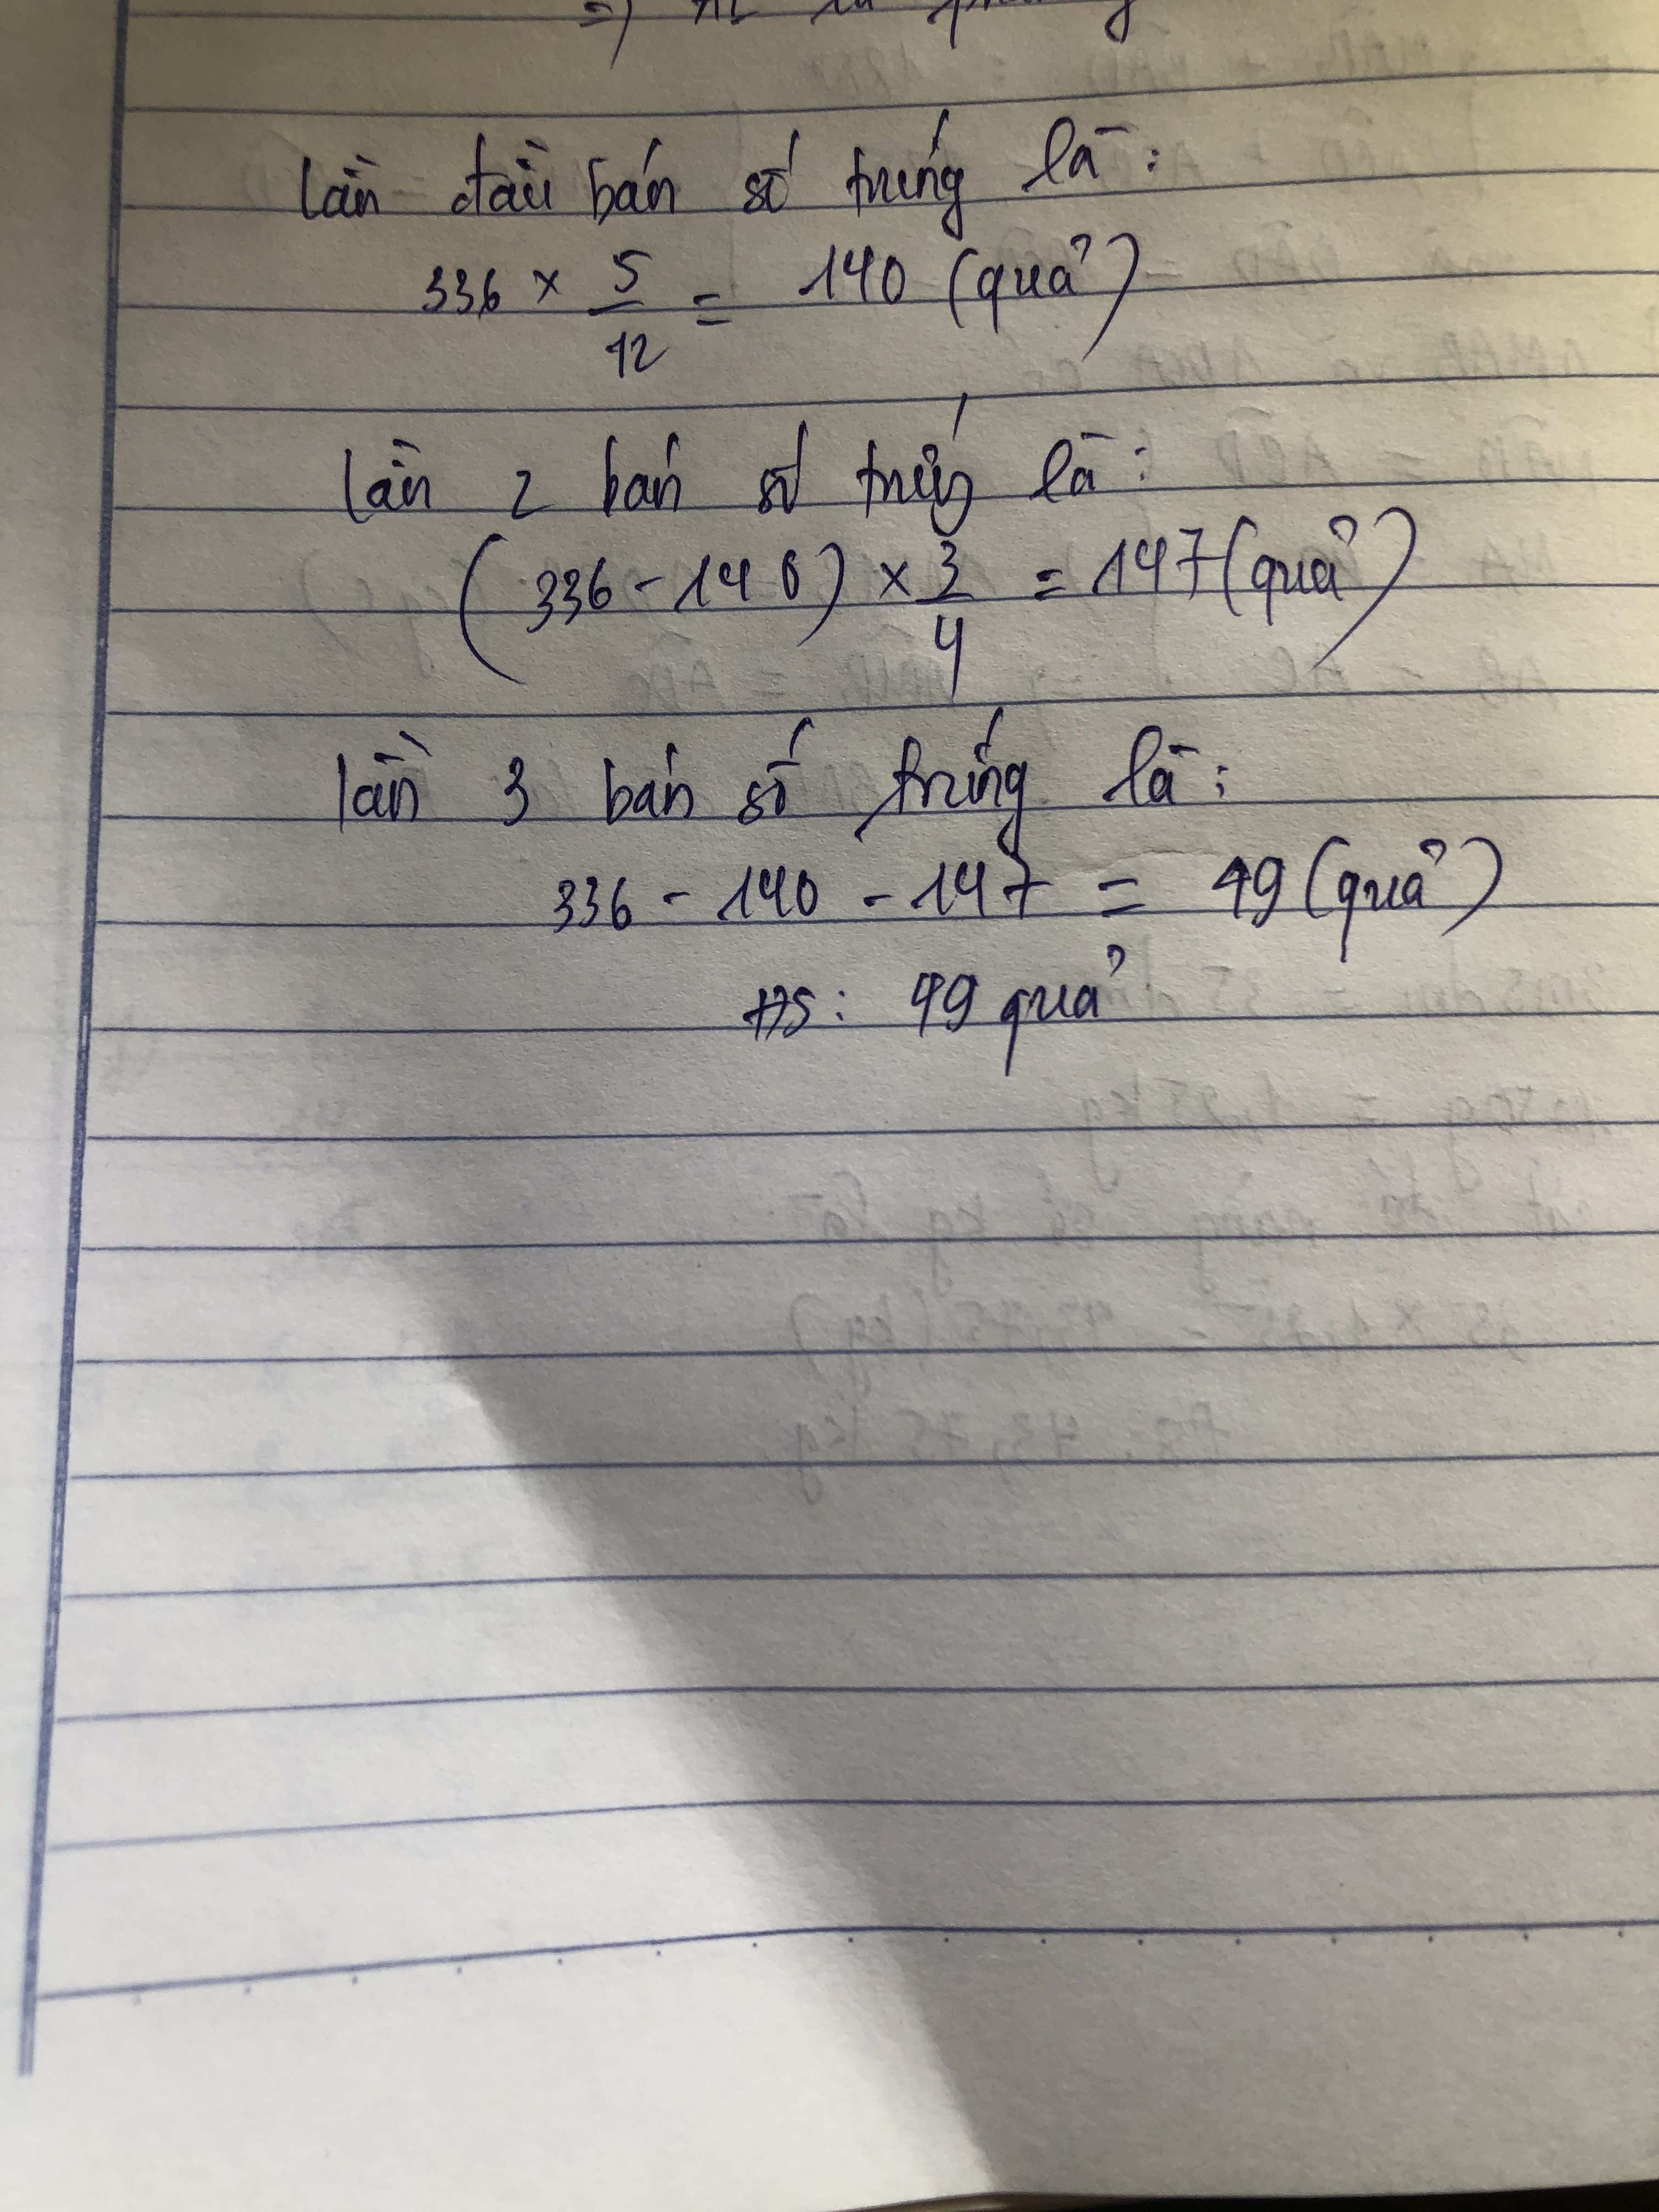 Lần đầu bán số trứng là:
336 × 5/12 = 140 (quả)
Lần 2 bán số trứng là:
(336 - 140) × 3/4 = 147 (quả)
Lần 3 bán số trứng là:
336 - 140 - 147 = 49 (quả)
ĐS: 49 quả